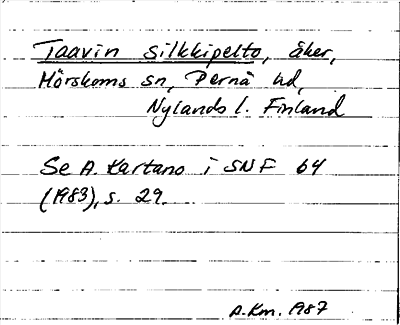 Taavin Silkkipelto, åker,
Mörskoms sn, Pernå hd,
Nylands l. Finland
Se A. Kartano i SNF 64
(1983), s. 29.
A.Km. 1987